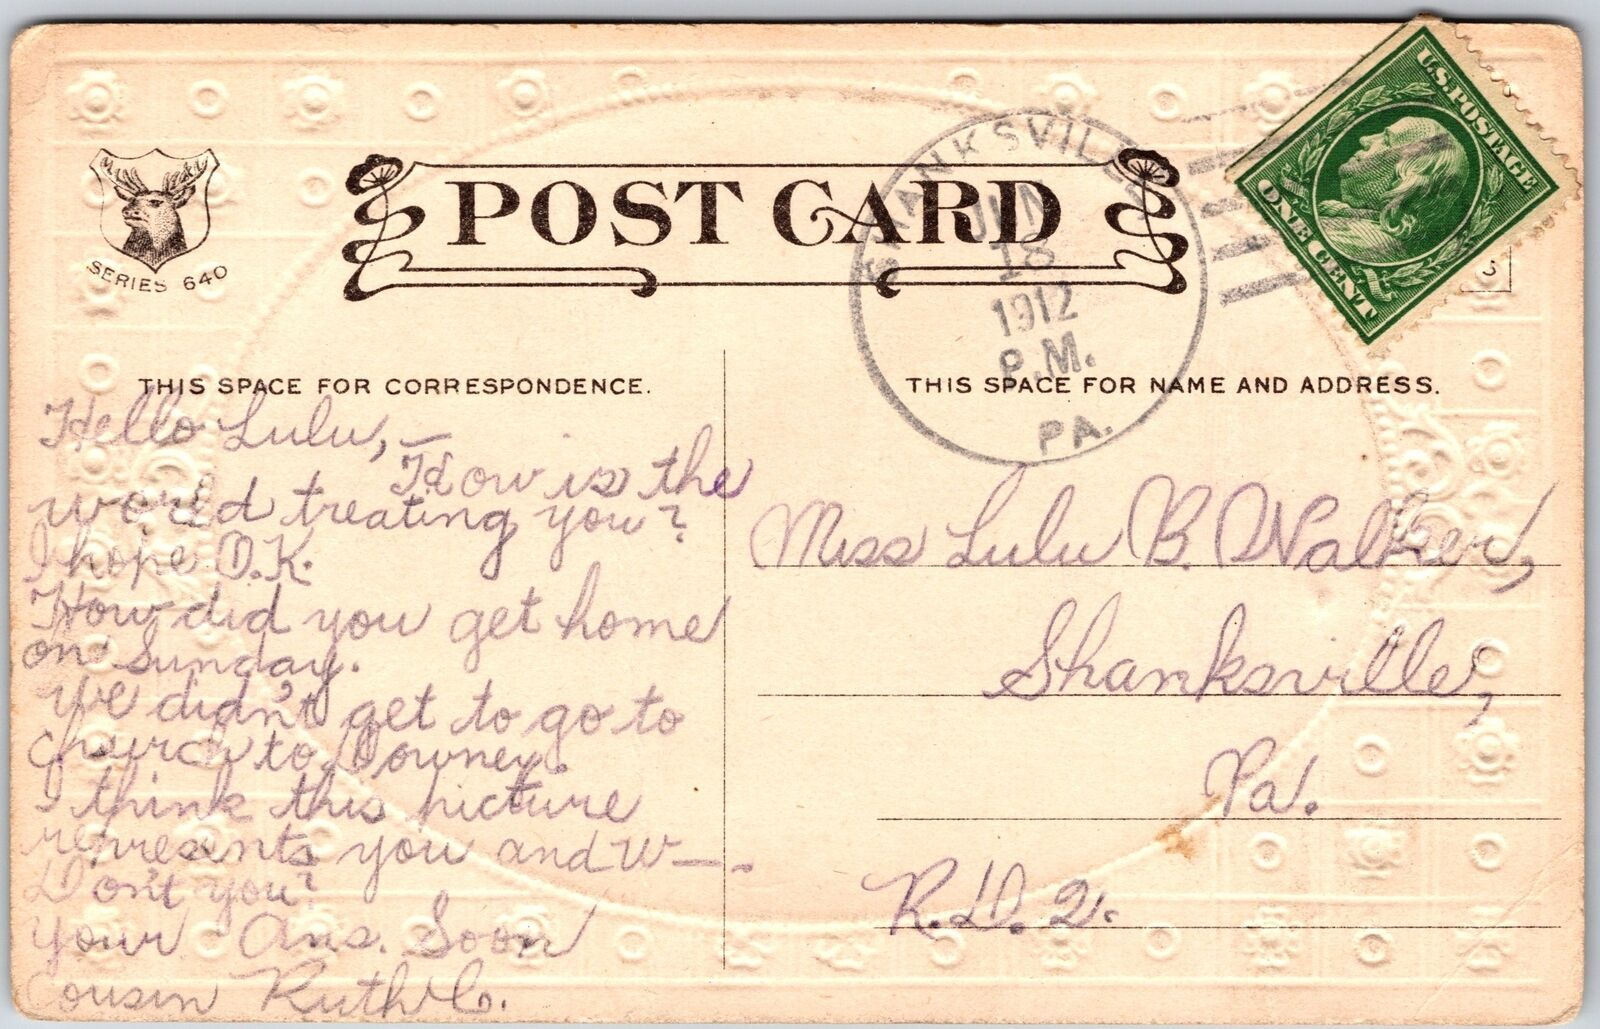 SERIES 640
POST CARD
SHANKSVILLE
JUN
18
1912
P.M.
PA.
U.S. POSTAGE
ONE CENT
THIS SPACE FOR CORRESPONDENCE.
THIS SPACE FOR NAME AND ADDRESS.
Hello Lulu,—
How is the
world treating you?
I hope O.K.
How did you get home
on Sunday.
We didn't get to go to
Church to Downey.
I think this picture
represents you and W—.
Don't you?
Your Ans. Soon
Cousin Ruth C.
Miss Lulu B. Walker,
Shanksville,
Pa.
R.D. 2.